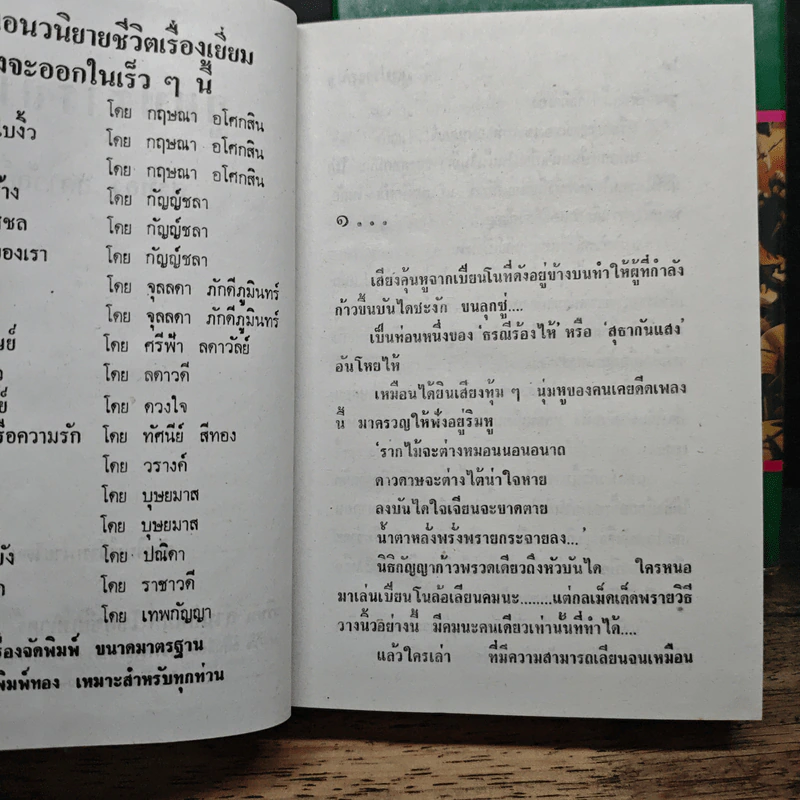 อนวนิยายชีวิตเรื่องเยี่ยม
งจะออกในเร็ว ๆ นี้
โดย กฤษณา อโศกสิน
ใบงิ้ว โดย กฤษณา อโศกสิน
โดย กฤษณา อโศกสิน
ว้าง โดย กัญญ์ชลา
สชล โดย กัญญ์ชลา
ของเรา โดย กัญญ์ชลา
โดย จุลลดา ภักดีภูมินทร์
โดย จุลลดา ภักดีภูมินทร์
โดย ศรีฟ้า ลดาวัลย์
โดย ลดาวดี
โดย ดวงใจ
รือความรัก โดย ทัศนีย์ สีทอง
โดย วรางค์
โดย บุษยมาส
โดย บุษยมาส
โดย ปณิดา
โดย ราชาวดี
โดย เทพกัญญา
รื่องจัดพิมพ์ ขนาดมาตรฐาน
พิมพ์ทอง เหมาะสำหรับทุกท่าน
๑...
เสียงคุ้นหูจากเปียนโนที่ดังอยู่ข้างบนทำให้ผู้ที่กำลัง
ก้าวขึ้นบันไดชะงัก ขนลุกซู่....
เป็นท่อนหนึ่งของ 'ธรณีร้องไห้' หรือ 'สุธากันแสง'
อันโหยไห้
เหมือนได้ยินเสียงทุ้ม ๆ นุ่มหูของคนเคยดีดเพลง
นี้ มาครวญให้ฟังอยู่ริมหู
'รากไม้จะต่างหมอนนอนอนาถ
ดาวดาษจะต่างไต้น่าใจหาย
ลงบันไดใจเจียนจะขาดตาย
น้ำตาหลั่งพรั่งพรายกระจายลง...'
นิธิกัญญาก้าวพรวดเดียวถึงหัวบันได ใครหนอ
มาเล่นเปียนโนล้อเลียนคมนะ........แต่กลเม็ดเด็ดพรายวิธี
วางนิ้วอย่างนี้ มีคมนะคนเดียวเท่านั้นที่ทำได้....
แล้วใครเล่า ที่มีความสามารถเลียนจนเหมือน